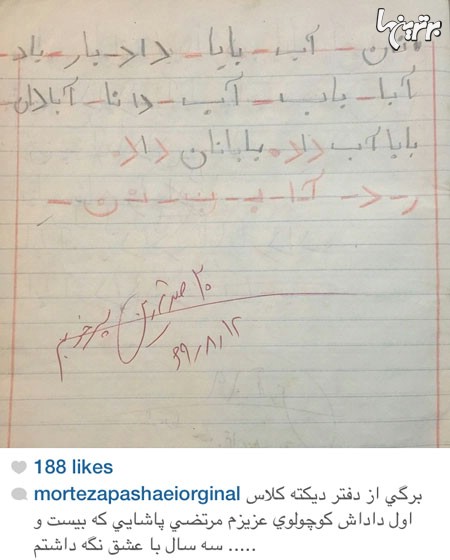 برترینها
نان - آب - بابا - داد - بار - باد -
آبا - باب - آب - دانا - آبادان
بابا آب داد. بابا نان داد
ر - د - آ ا - ب - ن -
۲۰ صد آفرین پسر خوبم
۶۹/۸/۱۲
188 likes
mortezapashaeiorginal برگي از دفتر ديكته كلاس
اول داداش كوچولوي عزيزم مرتضي پاشايي كه بيست و
سه سال با عشق نگه داشتم .....